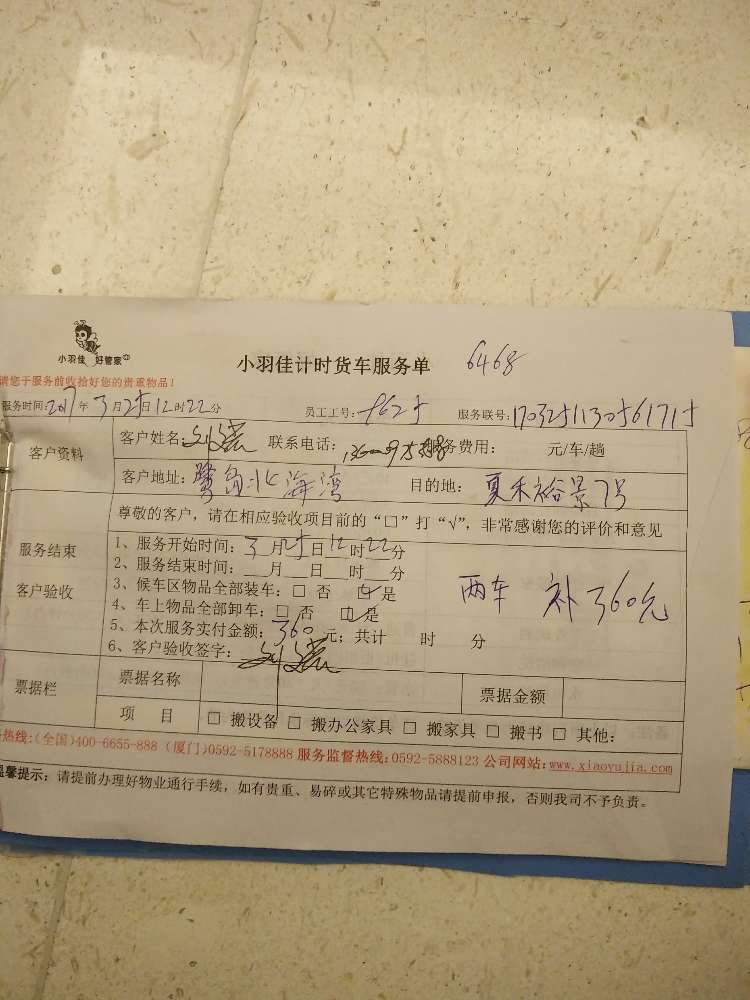 小羽佳 好管家
小羽佳计时货车服务单 6468
请您于服务前收拾好您的贵重物品！
服务时间：2017年3月25日12时22分 员工工号： 服务联号：1703251130561715
客户资料 客户姓名： 联系电话： 服务费用： 元/车/趟
客户地址：鹭岛北海湾 目的地：夏禾裕景7号
尊敬的客户，请在相应验收项目前的“□”打“√”，非常感谢您的评价和意见
服务结束 客户验收
1、服务开始时间：3月25日12时22分
2、服务结束时间：__月__日__时__分
3、候车区物品全部装车：□ 否 ☑ 是
4、车上物品全部卸车：□ 否 ☑ 是
两车 补360元
5、本次服务实付金额：360元；共计 时 分
6、客户验收签字：
票据栏 票据名称 票据金额
项 目 □ 搬设备 □ 搬办公家具 □ 搬家具 □ 搬书 □ 其他：
热线：(全国)400-6655-888 (厦门)0592-5178888 服务监督热线：0592-5888123 公司网站：www.xiaoyujia.com
温馨提示：请提前办理好物业通行手续，如有贵重、易碎或其它特殊物品请提前申报，否则我司不予负责。